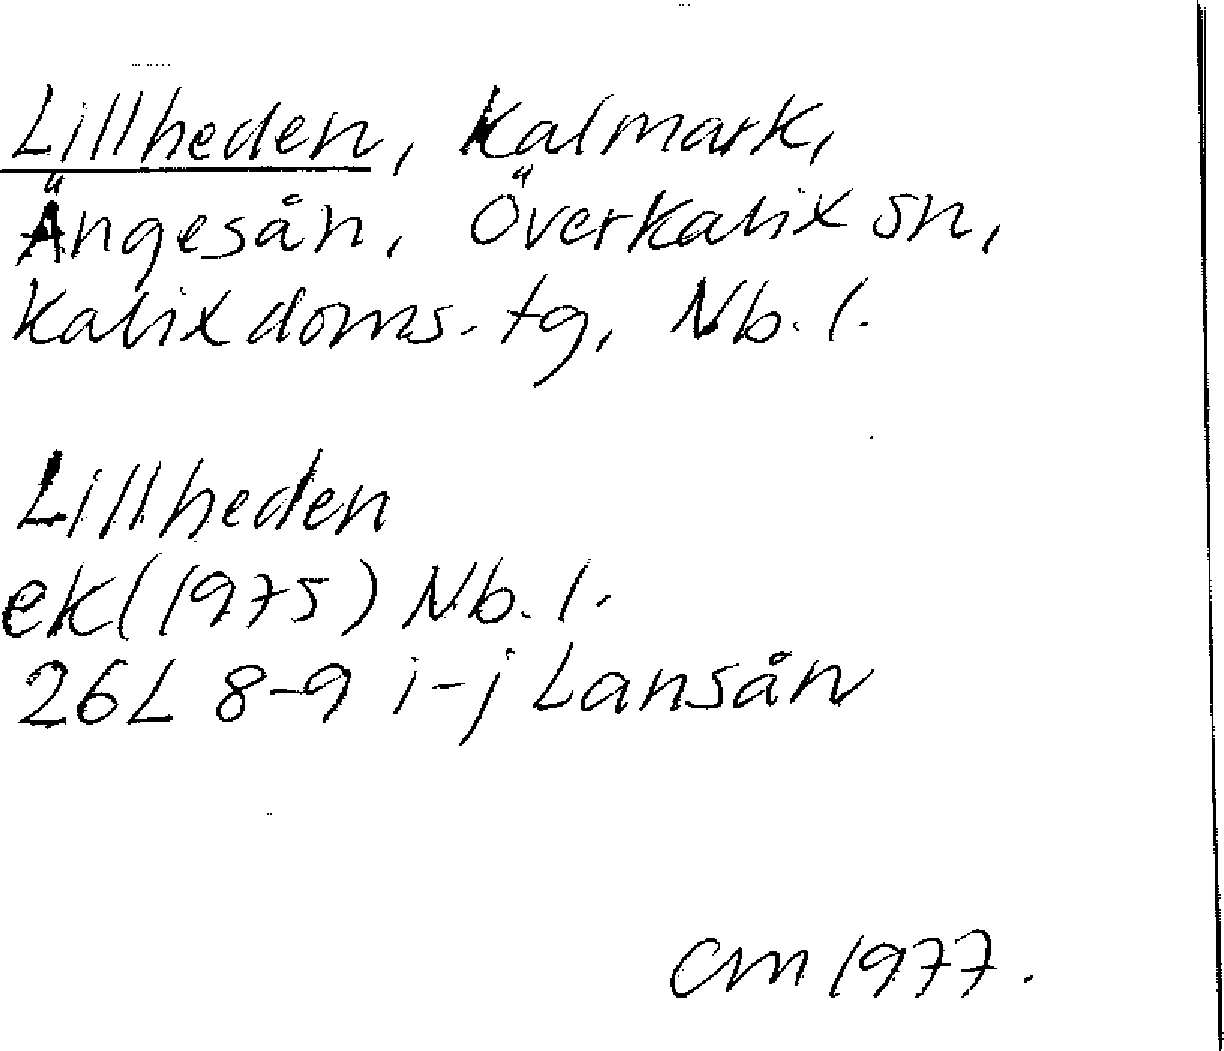 Lillheden, Kalmark,
Ängesån, Överkalix sn,
Kalix doms. tg, Nb. l.
Lillheden
ek (1975) Nb. l.
26L 8-9 i-j Lansån
CM 1977.